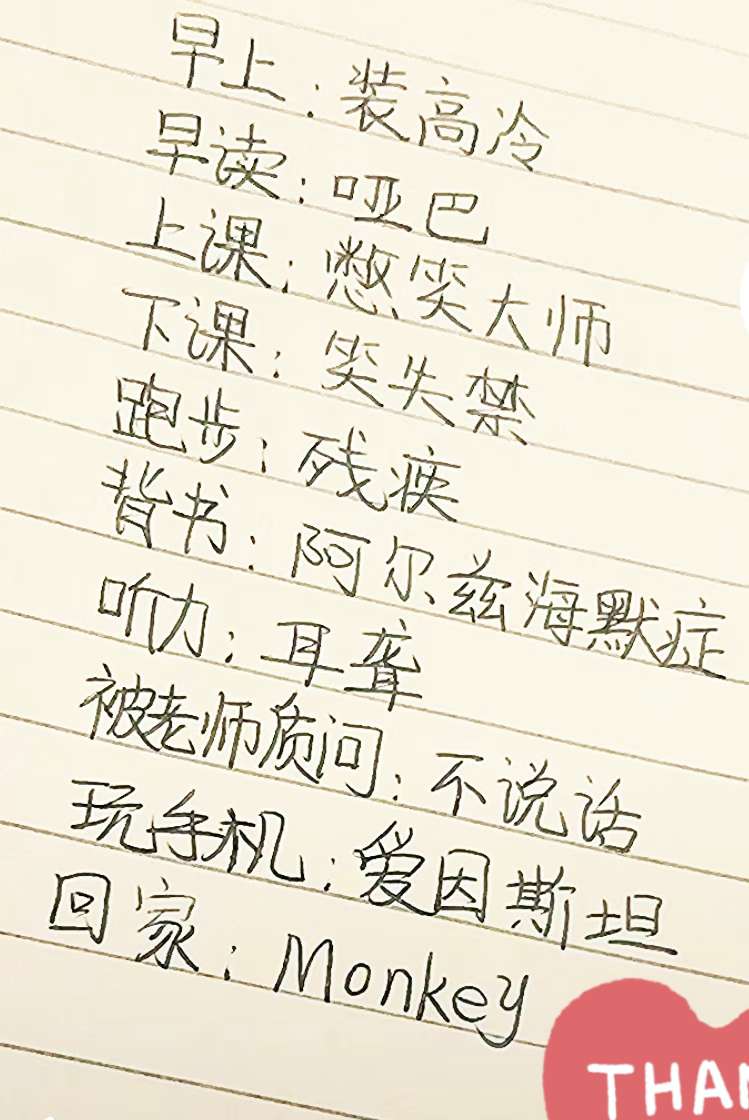 早上：装高冷
早读：哑巴
上课：憋笑大师
下课：笑失禁
跑步：残疾
背书：阿尔兹海默症
听力：耳聋
被老师质问：不说话
玩手机：爱因斯坦
回家：Monkey
THAN